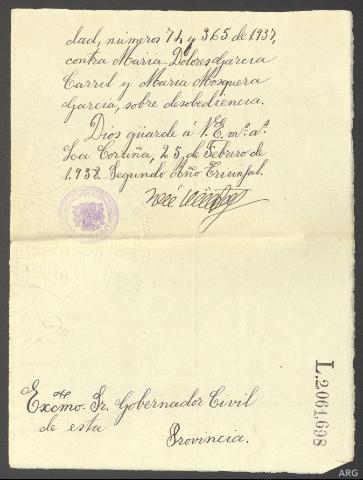 dad, números 74 y 365 de 1937,
contra Maria Dolores Garcia
Carril y Maria Mosquera
Garcia, sobre desobediencia.
Dios güarde á V.E. mº. aº.
La Coruña, 25 de Febrero de
1.938. Segundo Año Triunfal.
José
Excmo. Sr. Gobernador Civil
de esta
Provincia.
L.2061,698
ARG